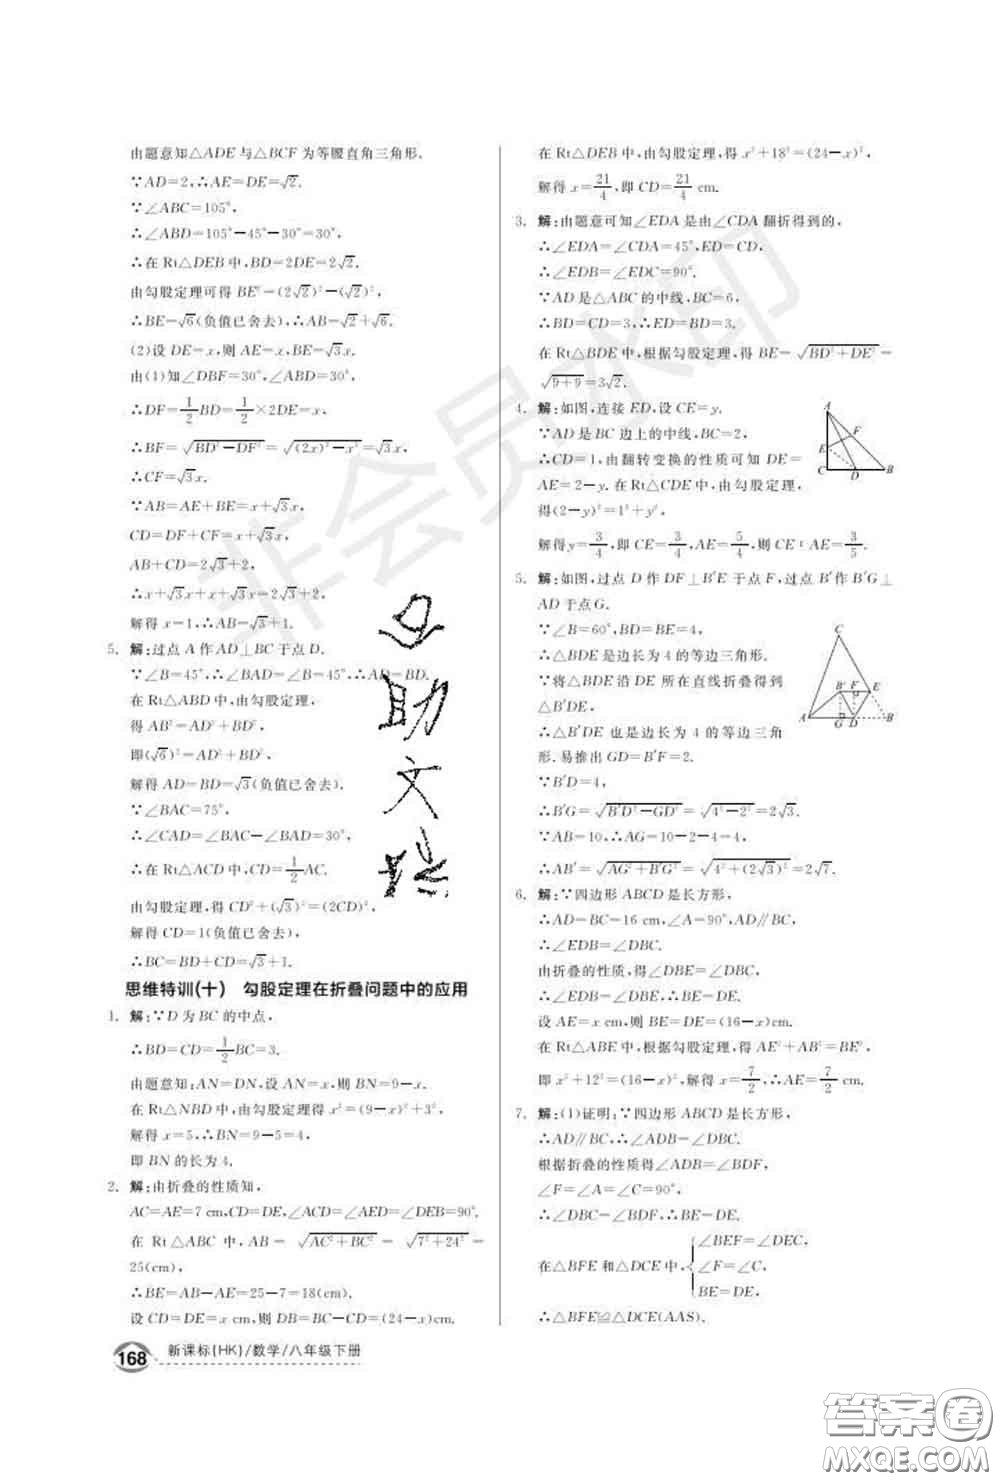 由题意知△ADE与△BCF为等腰直角三角形.
∵AD=2,∴AE=DE=√2.
∵∠ABC=105°,
∴∠ABD=105°-45°-30°=30°.
∴在Rt△DEB中,BD=2DE=2√2.
由勾股定理可得BE²=(2√2)²-(√2)²,
∴BE=√6(负值已舍去),∴AB=√2+√6.
(2)设DE=x,则AE=x,BE=√3x.
由(1)知∠DBF=30°,∠ABD=30°,
∴DF=1/2BD=1/2×2DE=x,
∴BF=√(BD²-DF²)=√((2x)²-x²)=√3x,
∴CF=√3x.
∵AB=AE+BE=x+√3x,
CD=DF+CF=x+√3x,
AB+CD=2√3+2,
∴x+√3x+x+√3x=2√3+2,
解得x=1,∴AB=√3+1.
5. 解:过点A作AD⊥BC于点D.
∵∠B=45°,∴∠BAD=∠B=45°,∴AD=BD.
在Rt△ABD中,由勾股定理,
得AB²=AD²+BD²,
即(√6)²=AD²+BD²,
解得AD=BD=√3(负值已舍去).
∵∠BAC=75°,
∴∠CAD=∠BAC-∠BAD=30°,
∴在Rt△ACD中,CD=1/2AC.
由勾股定理,得CD²+(√3)²=(2CD)²,
解得CD=1(负值已舍去),
∴BC=BD+CD=√3+1.
思维特训(十) 勾股定理在折叠问题中的应用
1. 解:∵D为BC的中点,
∴BD=CD=1/2BC=3.
由题意知:AN=DN,设AN=x,则BN=9-x.
在Rt△NBD中,由勾股定理得x²=(9-x)²+3²,
解得x=5,∴BN=9-5=4,
即BN的长为4.
2. 解:由折叠的性质知,
AC=AE=7 cm,CD=DE,∠ACD=∠AED=∠DEB=90°.
在Rt△ABC中,AB=√(AC²+BC²)=√(7²+24²)=
25(cm),
∴BE=AB-AE=25-7=18(cm).
设CD=DE=x cm,则DB=BC-CD=(24-x)cm.
168 新课标(HK)/数学/八年级下册
在Rt△DEB中,由勾股定理,得x²+18²=(24-x)²,
解得x=21/4,即CD=21/4 cm.
3. 解:由题意可知∠EDA是由∠CDA翻折得到的,
∴∠EDA=∠CDA=45°,ED=CD,
∴∠EDB=∠EDC=90°.
∵AD是△ABC的中线,BC=6,
∴BD=CD=3,∴ED=BD=3.
在Rt△BDE中,根据勾股定理,得BE=√(BD²+DE²)=
√(9+9)=3√2.
4. 解:如图,连接ED,设CE=y.
∵AD是BC边上的中线,BC=2,
∴CD=1,由翻转变换的性质可知DE=
AE=2-y.在Rt△CDE中,由勾股定理,
得(2-y)²=1²+y²,
解得y=3/4,即CE=3/4,AE=5/4,则CE∶AE=3/5.
A
F
E
C
D
B
5. 解:如图,过点D作DF⊥B′E于点F,过点B′作B′G⊥
AD于点G.
∵∠B=60°,BD=BE=4,
∴△BDE是边长为4的等边三角形.
∵将△BDE沿DE所在直线折叠得到
△B′DE,
∴△B′DE也是边长为4的等边三角
形.易推出GD=B′F=2.
∵B′D=4,
∴B′G=√(B′D²-GD²)=√(4²-2²)=2√3.
∵AB=10,∴AG=10-2-4=4,
∴AB′=√(AG²+B′G²)=√(4²+(2√3)²)=2√7.
C
B′
F
E
A
G
D
B
6. 解:∵四边形ABCD是长方形,
∴AD=BC=16 cm,∠A=90°,AD∥BC,
∴∠EDB=∠DBC.
由折叠的性质,得∠DBE=∠DBC,
∴∠EDB=∠DBE,∴BE=DE.
设AE=x cm,则BE=DE=(16-x)cm.
在Rt△ABE中,根据勾股定理,得AE²+AB²=BE²,
即x²+12²=(16-x)²,解得x=7/2,∴AE=7/2 cm.
7. 解:(1)证明:∵四边形ABCD是长方形,
∴AD∥BC,∴∠ADB=∠DBC.
根据折叠的性质得∠ADB=∠BDF,
∠F=∠A=∠C=90°,
∴∠DBC=∠BDF,∴BE=DE.
在△BFE和△DCE中,{∠BEF=∠DEC,
∠F=∠C,
BE=DE,
∴△BFE≌△DCE(AAS).
非会员水印
答案圈
MXQE.COM